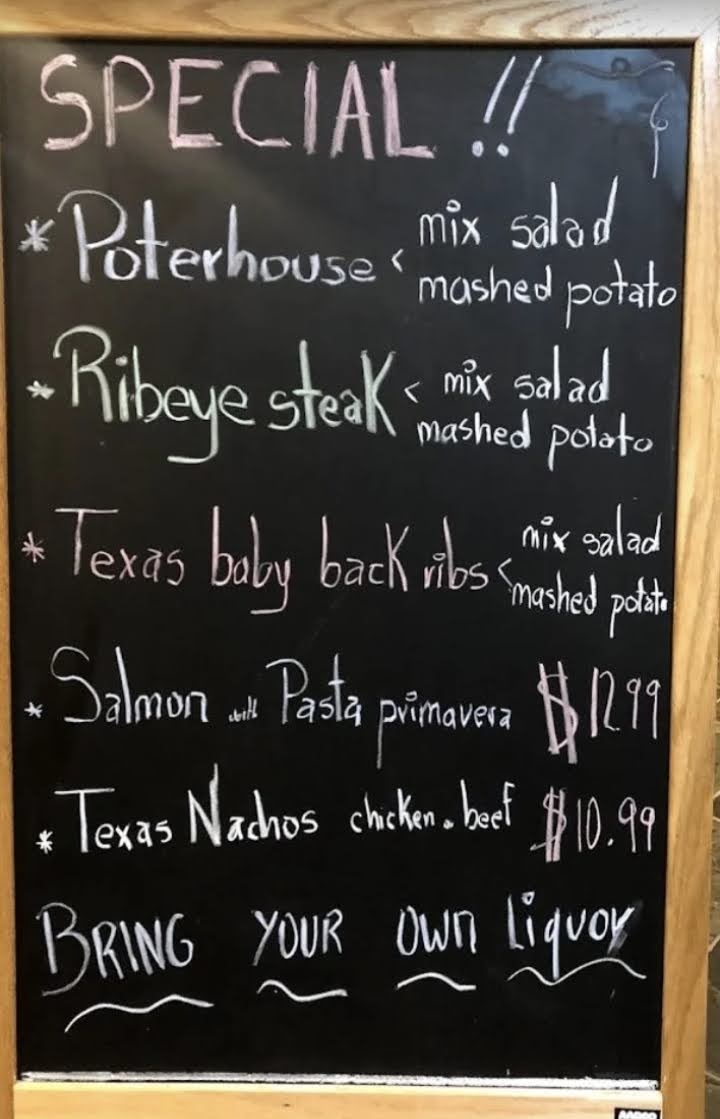 SPECIAL !!
* Poterhouse < mix salad
mashed potato
* Ribeye steak < mix salad
mashed potato
* Texas baby back ribs < mix salad
mashed potato
* Salmon with Pasta primavera $12.99
* Texas Nachos chicken . beef $10.99
BRING YOUR OWN liquor